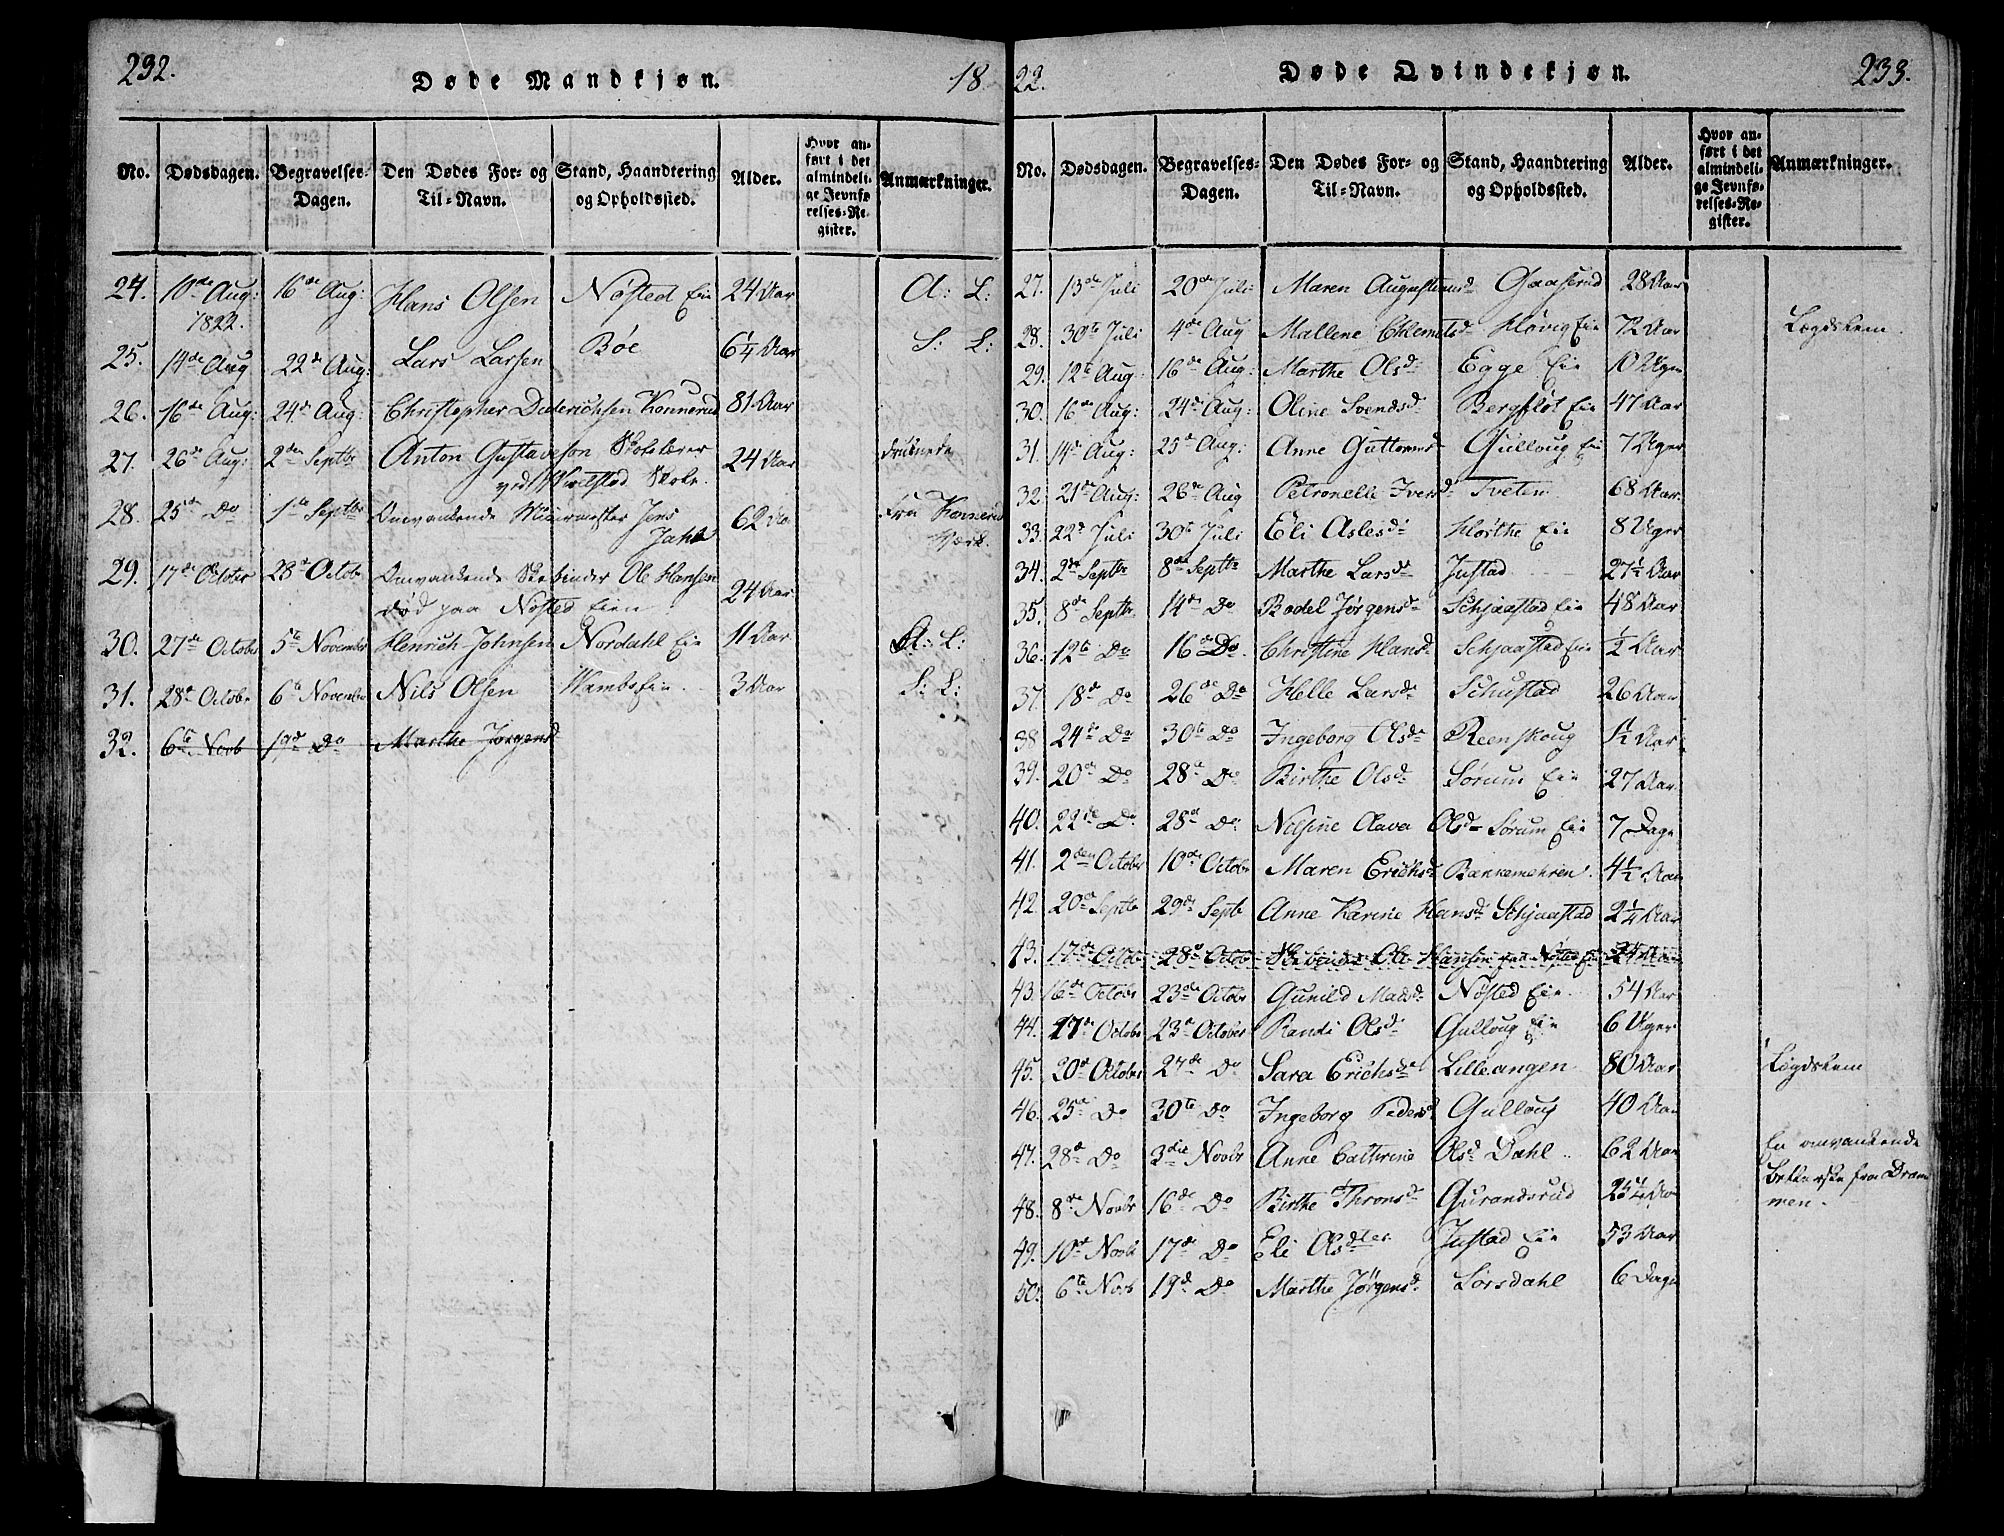 292.
Døde Mandkjøn.
18
No. Dødsdagen. Begravelses-Dagen. Den Dødes For- og Til-Navn. Stand, Haandtering og Opholdssted. Alder. Hvor anført i det almindelige Jevnførelses-Register. Anmærkninger.
24. 10de Aug: 1822. 16de Aug: Hans Olsen Nøsted Eie 24 Aar A: L:
25. 14de Aug 22de Aug: Lars Larsen Bøe 6¼ Aar S: L:
26. 16de Aug: 24de Aug: Christopher Diderichsen Konnerud 81 Aar
27. 26de Aug: 2den Septbr Anton Gustavson Skolelærer 24 Aar
ved Skole.
28. 25de Do 1ste Septbr Omvankende Jens 62 Aar Fra Konnerud
Værk.
29. 17de Octobr 28de Octob Omvankende Ole Hansen
død paa Nøsted Eien 24 Aar
30. 27de Octobr 5te November Henrich Johnsen Nordahl Eie 11 Aar A: L:
31. 28de Octobr 6te Novembr Nils Olsen Wambo Eie 3 Aar S: L:
32. 6te Novb 19de Do Marthe Jørgensd
22.
Døde Qvindekjøn.
233.
No. Dødsdagen. Begravelses-Dagen. Den Dødes For- og Til-Navn. Stand, Haandtering og Opholdssted. Alder. Hvor anført i det almindelige Jevnførelses-Register. Anmærkninger.
27. 13de Juli 20de Juli Maren Gaaserud 28 Aar
28. 30te Juli 4de Aug Mallene Clemetsd Høvig Eie 72 Aar Lægdslem
29. 12te Aug: 16de Aug: Marthe Olsd Egge Eie 10 Uger
30. 16de Aug: 24de Aug: Oline Svendsd Bergfløt Eie 47 Aar
31. 14de Aug: 25de Aug: Anne Guttormsd Gulloug Eie 7 Uger
32. 21de Aug: 26de Aug Petronelle Iversd Tveten 68 Aar
33. 22de Juli 30te Juli Eli Aslesd Horthe Eie 8 Uger
34. 2den Septbr 8de Septbr Marthe Larsd Justad 27½ Aar
35. 8de Septbr 14de Do Bodel Jørgensd Schjaastad Eie 48 Aar
36. 12te Do 16de Do Christine Hansd Schjaastad Eie ½ Aar
37. 18de Do 26de Do Helle Larsd Schustad 26 Aar
38 24de Do 30te Do Ingeborg Olsd Reenskoug 1½ Aar
39. 20de Do 28de Do Birthe Olsd Sørum Eie 27 Aar
40. 22de Do 28de Do Nilsine Olava Olsd Sørum Eie 7 Dage
41. 2den Octobr 10de Octobr Maren Erichsd Bakkemehren 4½ Aar
42 20de Septbr 29de Septb Anne Karine Hansd Schjaastad 2¼ Aar
43. 17de Octob 28de Octob Ole Hansen paa Nøsted Eie 24 Aar
43. 16de Octobr 23de Octobr Gunild Madsd Nøsted Eie 54 Aar
44. 17de Octobr 23de October Randi Olsd Gulloug Eie 6 Uger
45. 20de Octobr 27de Do Sara Erichsd Lilleangen 80 Aar Lægdslem
46. 25de Do 30te Do Ingeborg Pedersd Gulloug 40 Aar
47. 28de Do 3die Novbr Anne Cathrine Olsd Dahl 62 Aar En omvankende
Betlerske fra Dram
men.
48. 8de Novbr 16de Do Birthe Thronsd Gurandsrud 25¼ Aar
49. 10de Novb 17de Do Eli Olsdter Justad Eie 53 Aar
50. 6te Novb 19de Do Marthe Jørgensd Sørsdahl 6 Dage